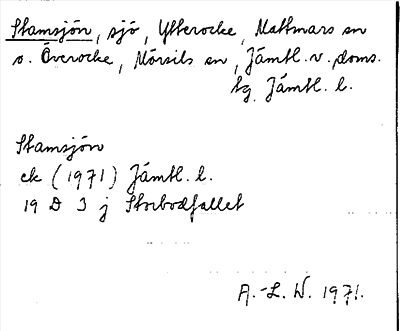 Stamsjön, sjö, Ytterocke, Mattmars sn
o. Överocke, Mörsils sn, Jämtl. v. doms.
tg Jämtl. l.
Stamsjön
ek (1971) Jämtl. l.
19 D 3 j Storbodfallet
A.-L. W. 1971.